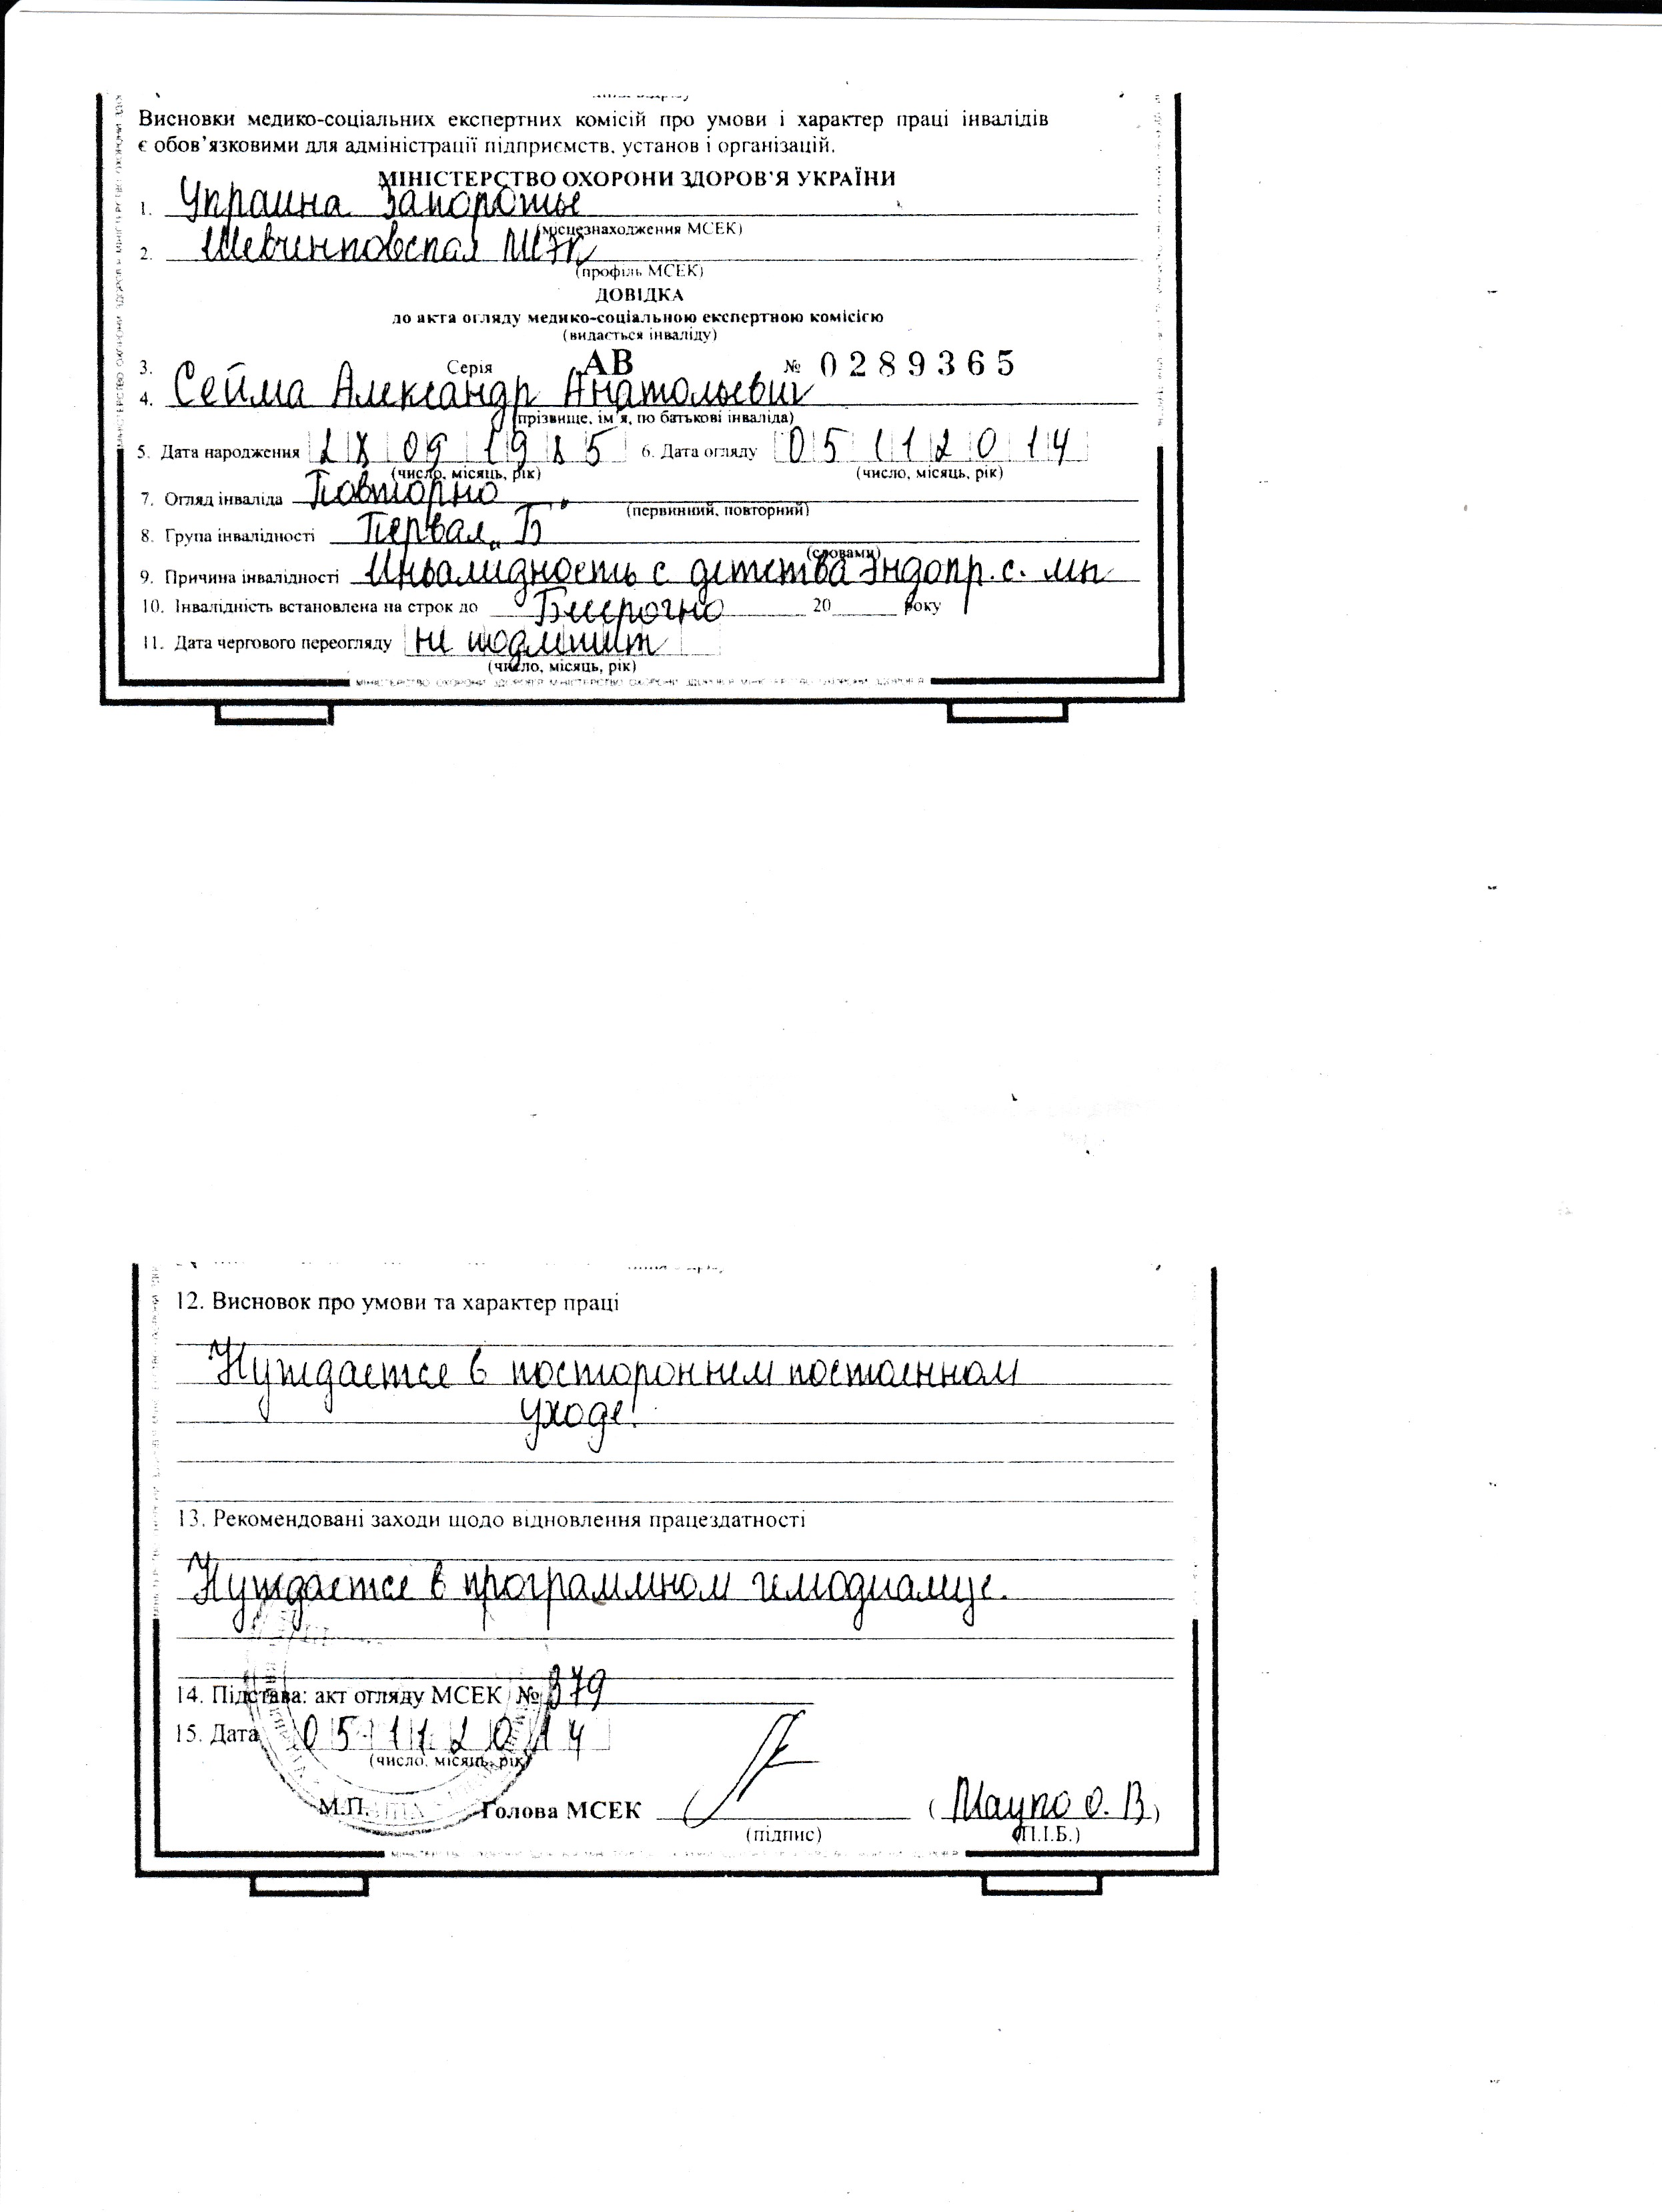 Висновки медико-соціальних експертних комісій про умови і характер праці інвалідів
є обов'язковими для адміністрації підприємств, установ і організацій.
МІНІСТЕРСТВО ОХОРОНИ ЗДОРОВ'Я УКРАЇНИ
1. Украина Запорожье
(місцезнаходження МСЕК)
2. Шевченковская МСЭК
(профіль МСЕК)
ДОВІДКА
до акта огляду медико-соціальною експертною комісією
(видається інваліду)
3. Серія АВ № 0289365
4. Сейма Александр Анатольевич
(прізвище, ім'я, по батькові інваліда)
5. Дата народження 28 09 1985 6. Дата огляду 05 11 2014
(число, місяць, рік) (число, місяць, рік)
7. Огляд інваліда Повторно
(первинний, повторний)
8. Група інвалідності Первая "Б
(словами)
9. Причина інвалідності Инвалидность с детства эндопр. с.
10. Інвалідність встановлена на строк до Бессрочно 20 року
11. Дата чергового переогляду не подлежит
(число, місяць, рік)
12. Висновок про умови та характер праці
Нуждается в постороннем постоянном
уходе!
13. Рекомендовані заходи щодо відновлення працездатності
Нуждается в программном гемодиализе.
14. Підстава: акт огляду МСЕК № 379
15. Дата 05 11 2014
(число, місяць, рік)
М.П. Голова МСЕК ( О. В )
(підпис) (П.І.Б.)